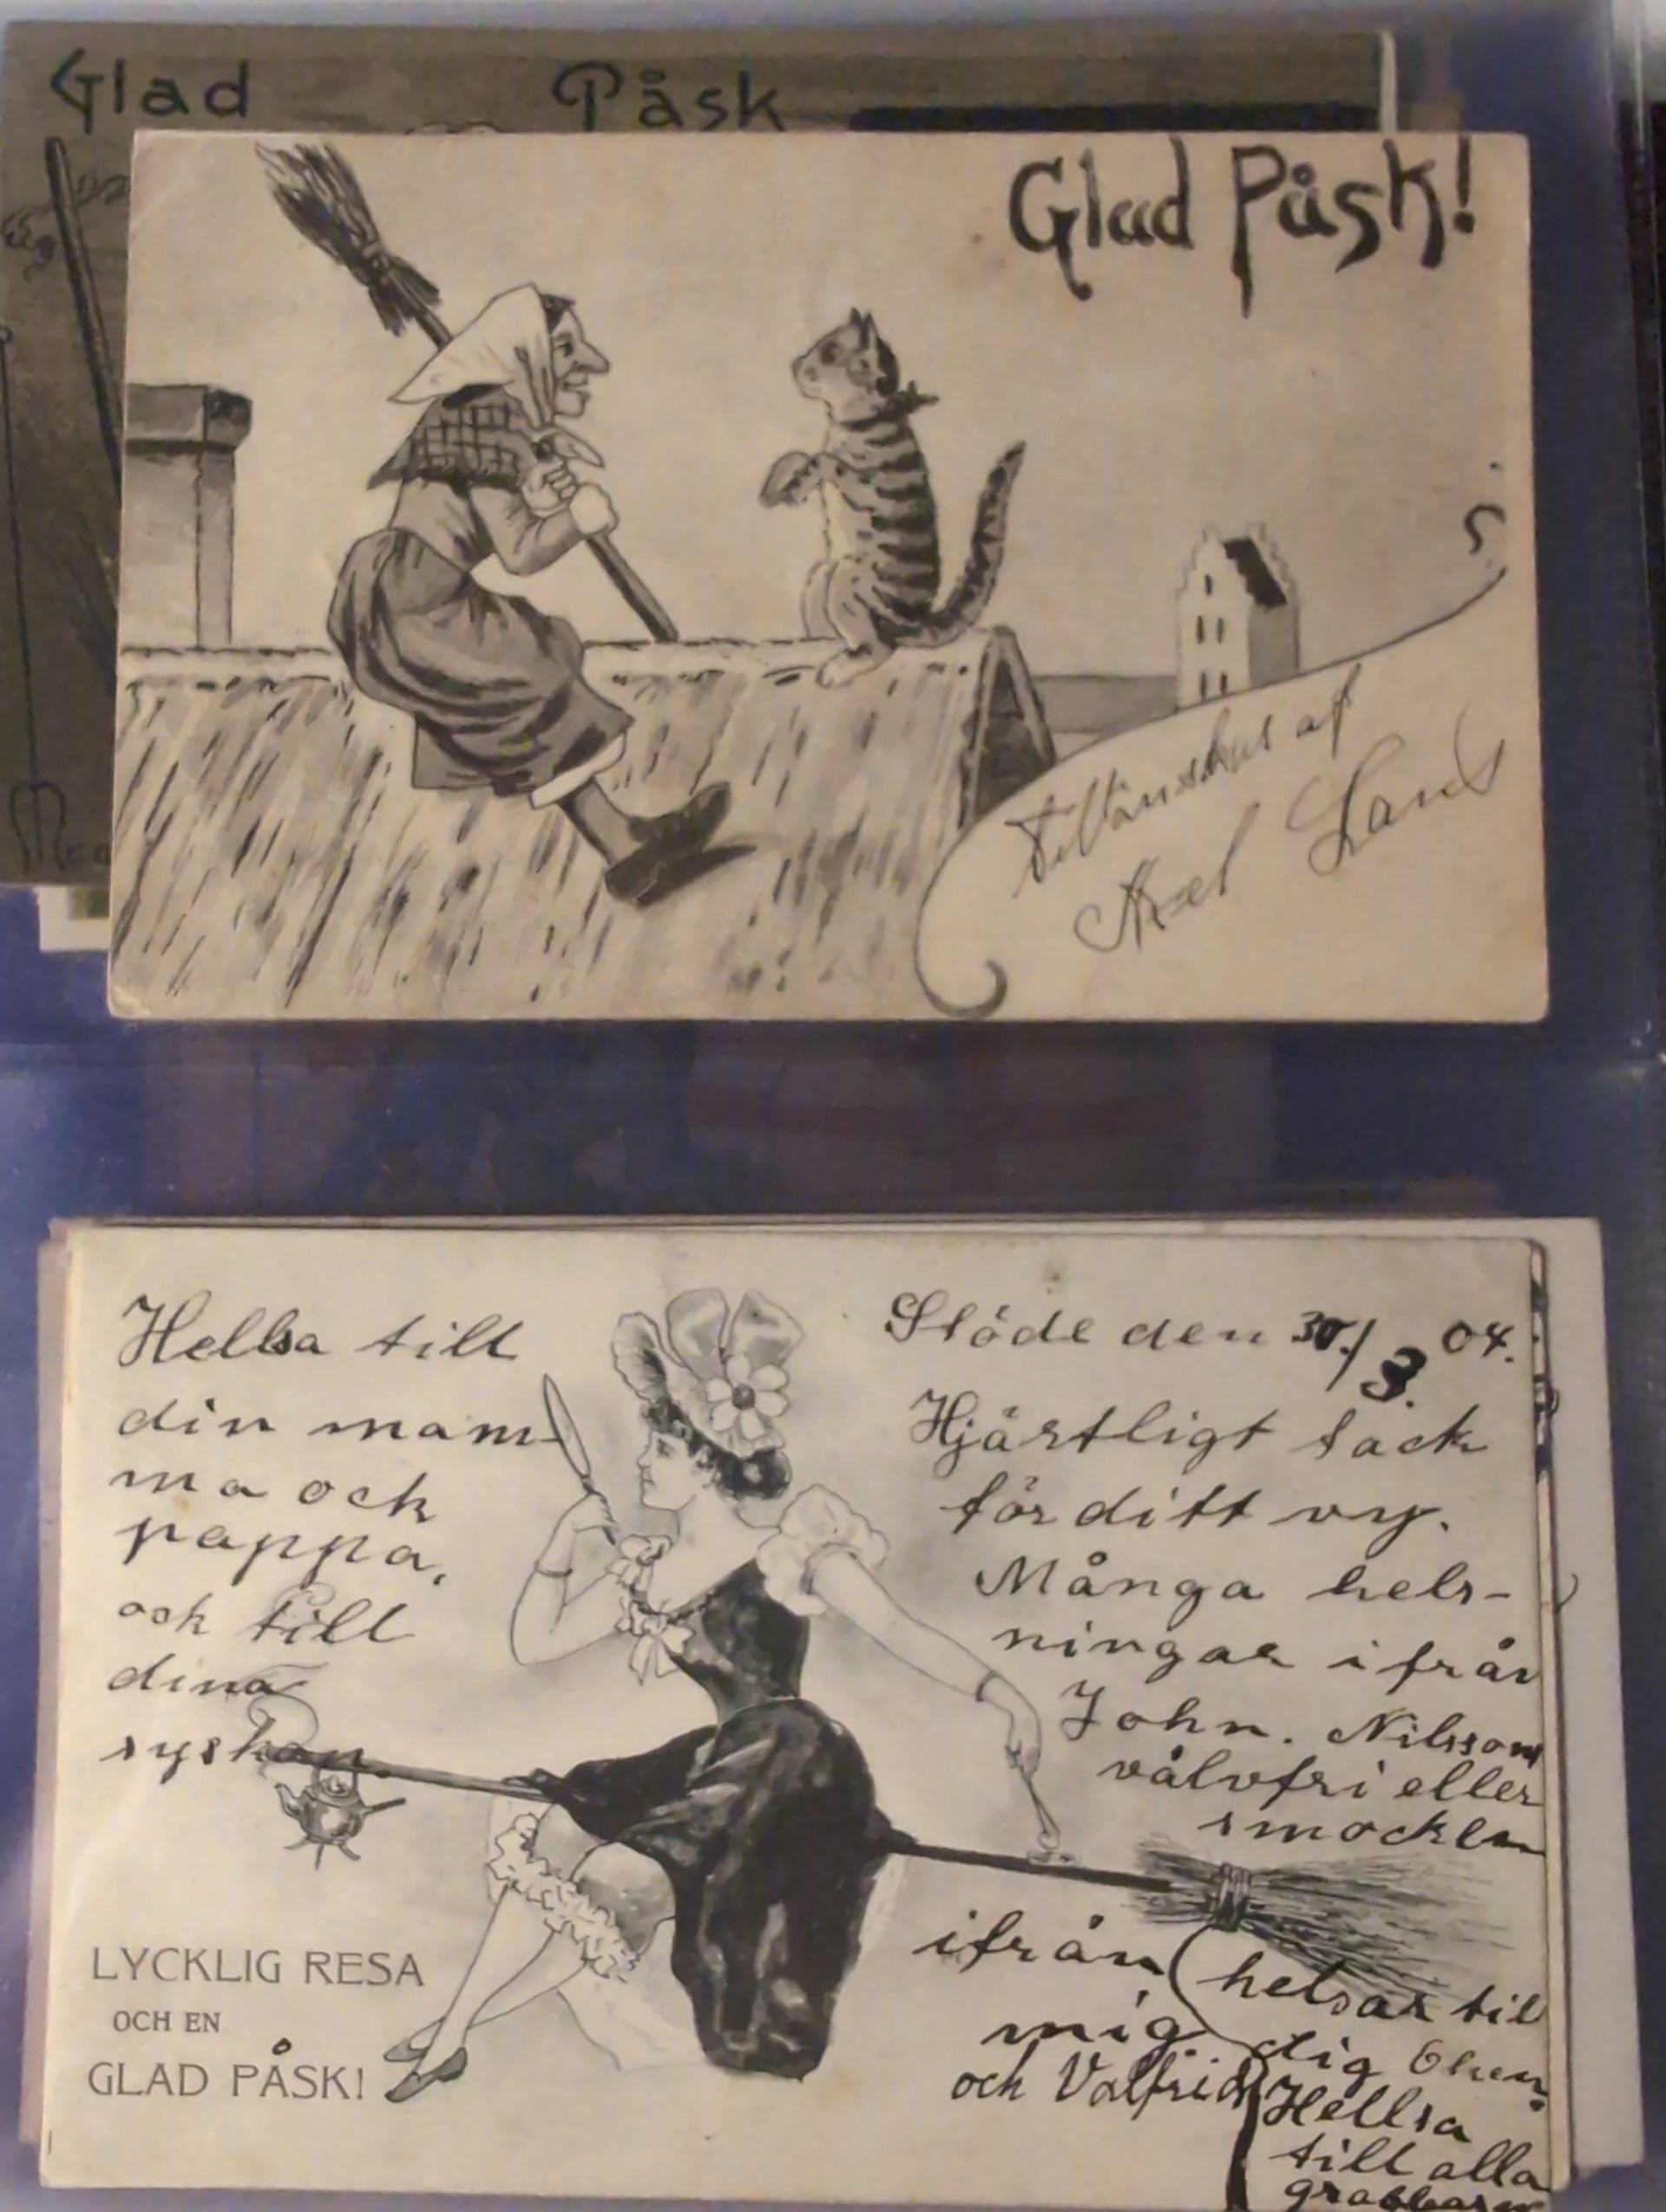 Glad Påsk
Glad Påsk!
Tillönskas af
Axel
Hellsa till
din mam-
ma och
pappa,
och till
dina
syskon
LYCKLIG RESA
OCH EN
GLAD PÅSK!
Stöde den 30./3. 04.
Hjärtligt tack
för ditt vy.
Många hels-
ningar ifrån
John. Nilsson
eller
ifrån
mig
och Valfrid
helsar till
dig
Hellsa
till alla